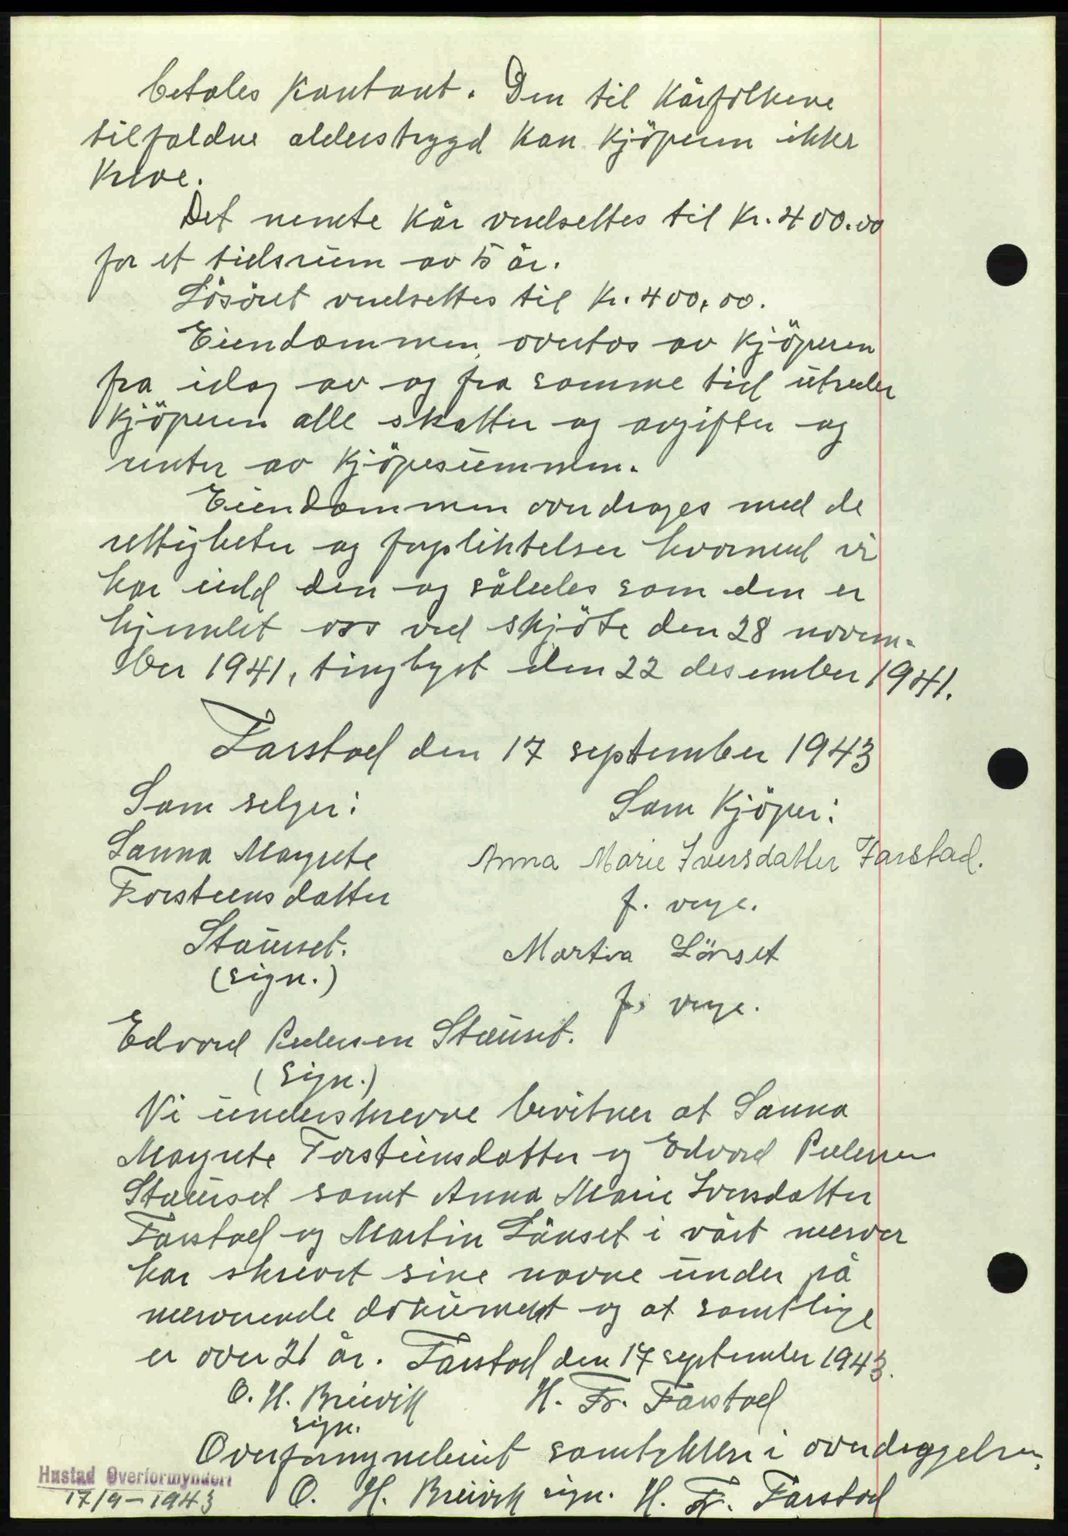 betales kontant. Den til kårfolkene
tilfaldne alderstrygd kan kjöperen ikke
kreve.
Det nevnte kår verdsettes til kr. 400.00
for et tidsrum av 5 år.
Lösöret verdsettes til kr. 400,00.
Eiendommen overtas av kjöperen
fra idag av og fra samme tid utreder
kjöperen alle skatter og avgifter og
renter av kjöpesummen.
Eiendommen overdrages med de
rettigheter og forpliktelser hvormed vi
har eidd den og således som den er
hjemlet oss ved skjöte den 28 novem-
ber 1941, tinglyst den 22 desember 1941.
Farstad den 17 september 1943
Som selger:
Sanna Magrete
Torsteensdatter
Stauset.
(sign.)
Edvard Pedersen Stauset.
(sign.)
Som kjöper:
Anna Marie Iversdatter Farstad.
f. verge.
Martin Lönset
f. verge.
Vi underskrevne bevitner at Sanna
Magrete Torsteinsdatter og Edvard Pedersen
Stauset samt Anna Marie Iversdatter
Farstad og Martin Lönset i vårt nærvær
har skrevet sine navne under på
nærværende dokument og at samtlige
er over 21 år. Farstad den 17 september 1943.
O. H. Breivik H. Fr. Farstad
sign.
Overformynderiet samtykker i overdragelsen.
Hustad Overformynderi
17/9-1943 O. H. Breivik sign. H. Fr. Farstad